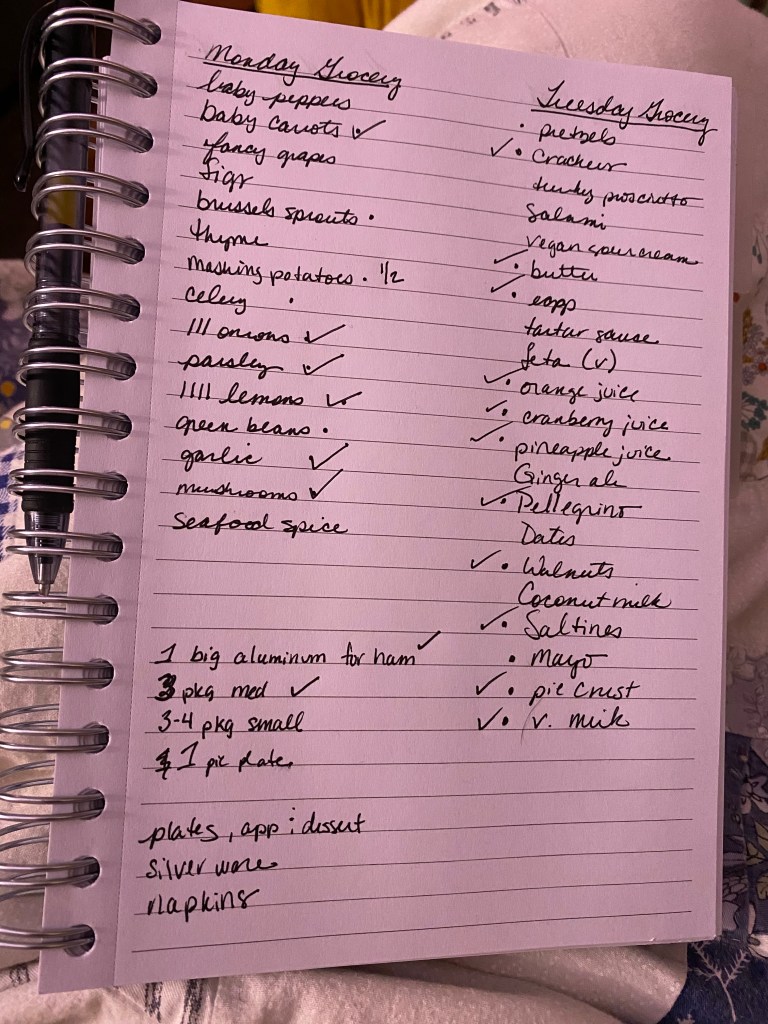 Monday Grocery
baby peppers
baby carrots ✓
fancy grapes
figs
brussels sprouts •
thyme
mashing potatoes • 1/2
celery •
III onions ✓
parsley ✓
IIII lemons ✓
green beans •
garlic ✓
mushrooms ✓
seafood spice
1 big aluminum for ham ✓
3 pkg med ✓
3-4 pkg small
1 pie plate
plates, app : dessert
silver ware
napkins
Tuesday Grocery
• pretzels
✓ • Crackers
turkey prosciutto
Salami
vegan sour cream
✓ • butter
✓ • eggs
tartar sause
feta (v)
✓ • orange juice
✓ • cranberry juice
✓ • pineapple juice
Ginger ale
✓ • Pellegrino
Dates
✓ • Walnuts
Coconut milk
✓ • Saltines
• Mayo
✓ • pie Crust
✓ • v. milk